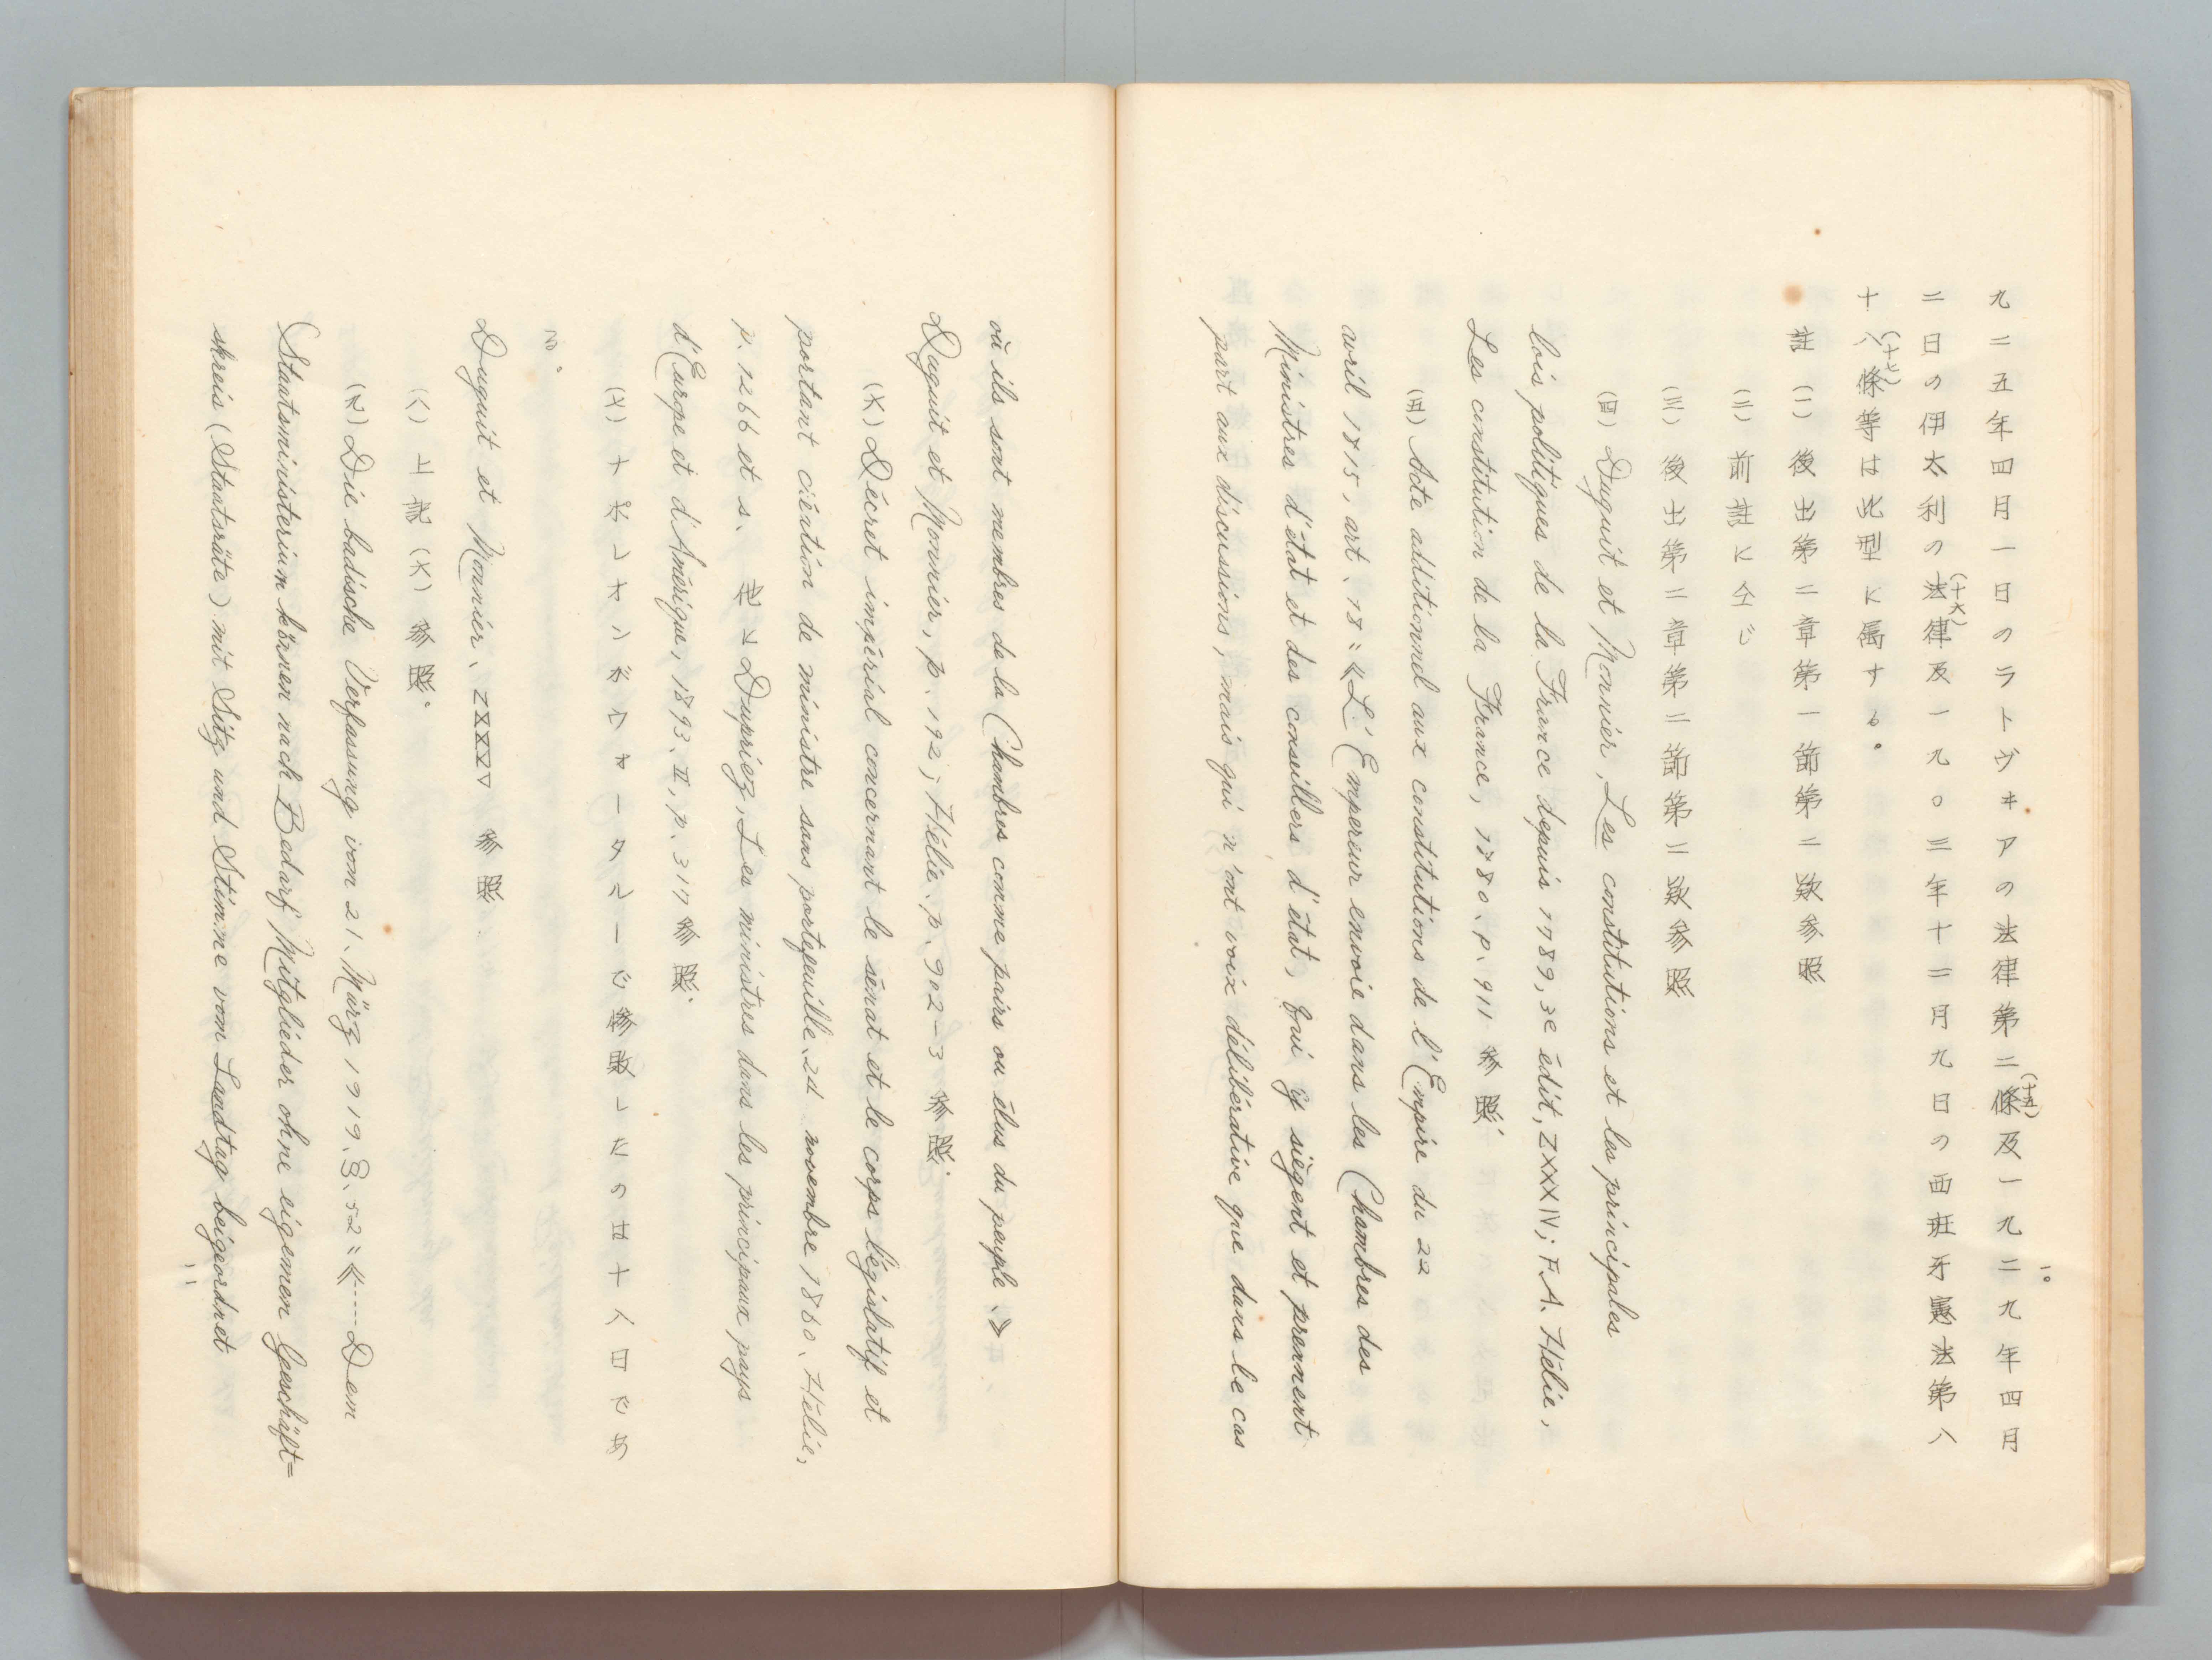 九二五年四月一日のラトヴヰアの法律第二條(十五)及一九二九年四月
二日の伊太利の法律(十六)及一九〇三年十二月九日の西班牙憲法第八
十八條(十七)等は此型に属する。
註 (一) 後出第二章第一節第二欵参照
(二) 前註に仝じ
(三) 後出第二章第二節第二欵参照
(四) Duguit et Monnier, Les constitutions et les principales
lois politiques de la France depuis 1789, 3e édit, ZXXXIV; F.A. Hélie,
Les constitution de la France, 1880. p. 911 参照.
(五) Acte additionnel aux constitutions de l'Empire du 22
avril 1815, art. 18: 《L'Empereur envoie dans les Chambres des
Ministres d'état et des conseillers d'état, qui y siègent et prennent
part aux discussions, mais qui n'ont voix délibérative que dans le cas
一〇
où ils sont membres de la Chambres comme pairs ou élus du peuple.》
Duguit et Monnier, p. 192; Hélie. p. 902-3 参照.
(六) Décret impérial concernant le sénat et le corps législatif et
portant création de ministre sans portefeuille. 24 novembre 1860. Hélie,
p. 1266 et s. 他に Dupriez, Les ministres dans les principaux pays
d'Europe et d'Amérique, 1893. II, p. 317 参照.
(七) ナポレオンがウォータルーで惨敗したのは十八日であ
る。
Duguit et Monnier, ZXXXXV 参照.
(八) 上記(六)参照.
(九) Die badische Verfassung vom 21. März 1919. §. 52: 《----Dem
Staatsministerium können nach Bedarf Mitglieder ohne eigenen Geschäft=
skreis (Staatsräte) mit Sitz und Stimme vom Landtag beigeordnet
一一